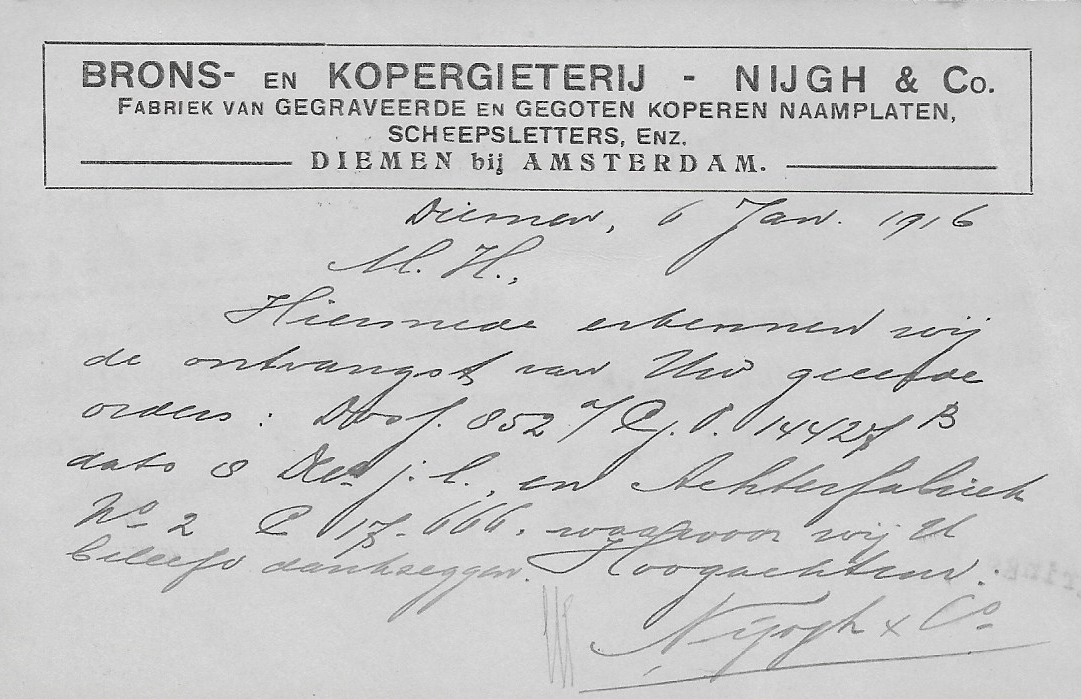 BRONS- EN KOPERGIETERIJ - NIJGH & Co.
FABRIEK VAN GEGRAVEERDE EN GEGOTEN KOPEREN NAAMPLATEN,
SCHEEPSLETTERS, ENZ.
DIEMEN bij AMSTERDAM.
Diemen, 6 Jan. 1916
M. H.,
Hiermede erkennen wij
de ontvangst van Uw geeerde
orders: 852
dato 8 j.l. en Achterfabriek
No 2 C waarvoor wij U
beleefd dankzeggen. Hoogachtend.
Nijgh & Co.